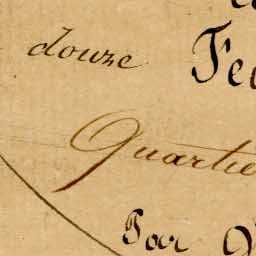 douze Feu
Quartie
Par